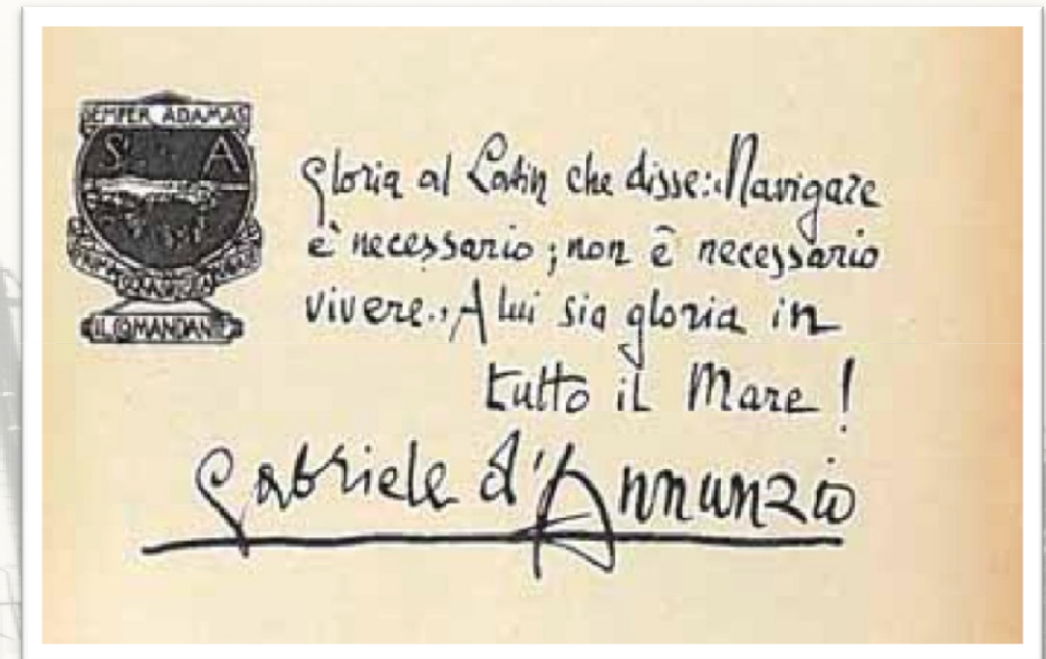 SEMPER ADAMAS
S A
IL COMANDANTE
Gloria al Latin che disse: "Navigare
è necessario; non è necessario
vivere". A lui sia gloria in
tutto il Mare!
Gabriele d'Annunzio